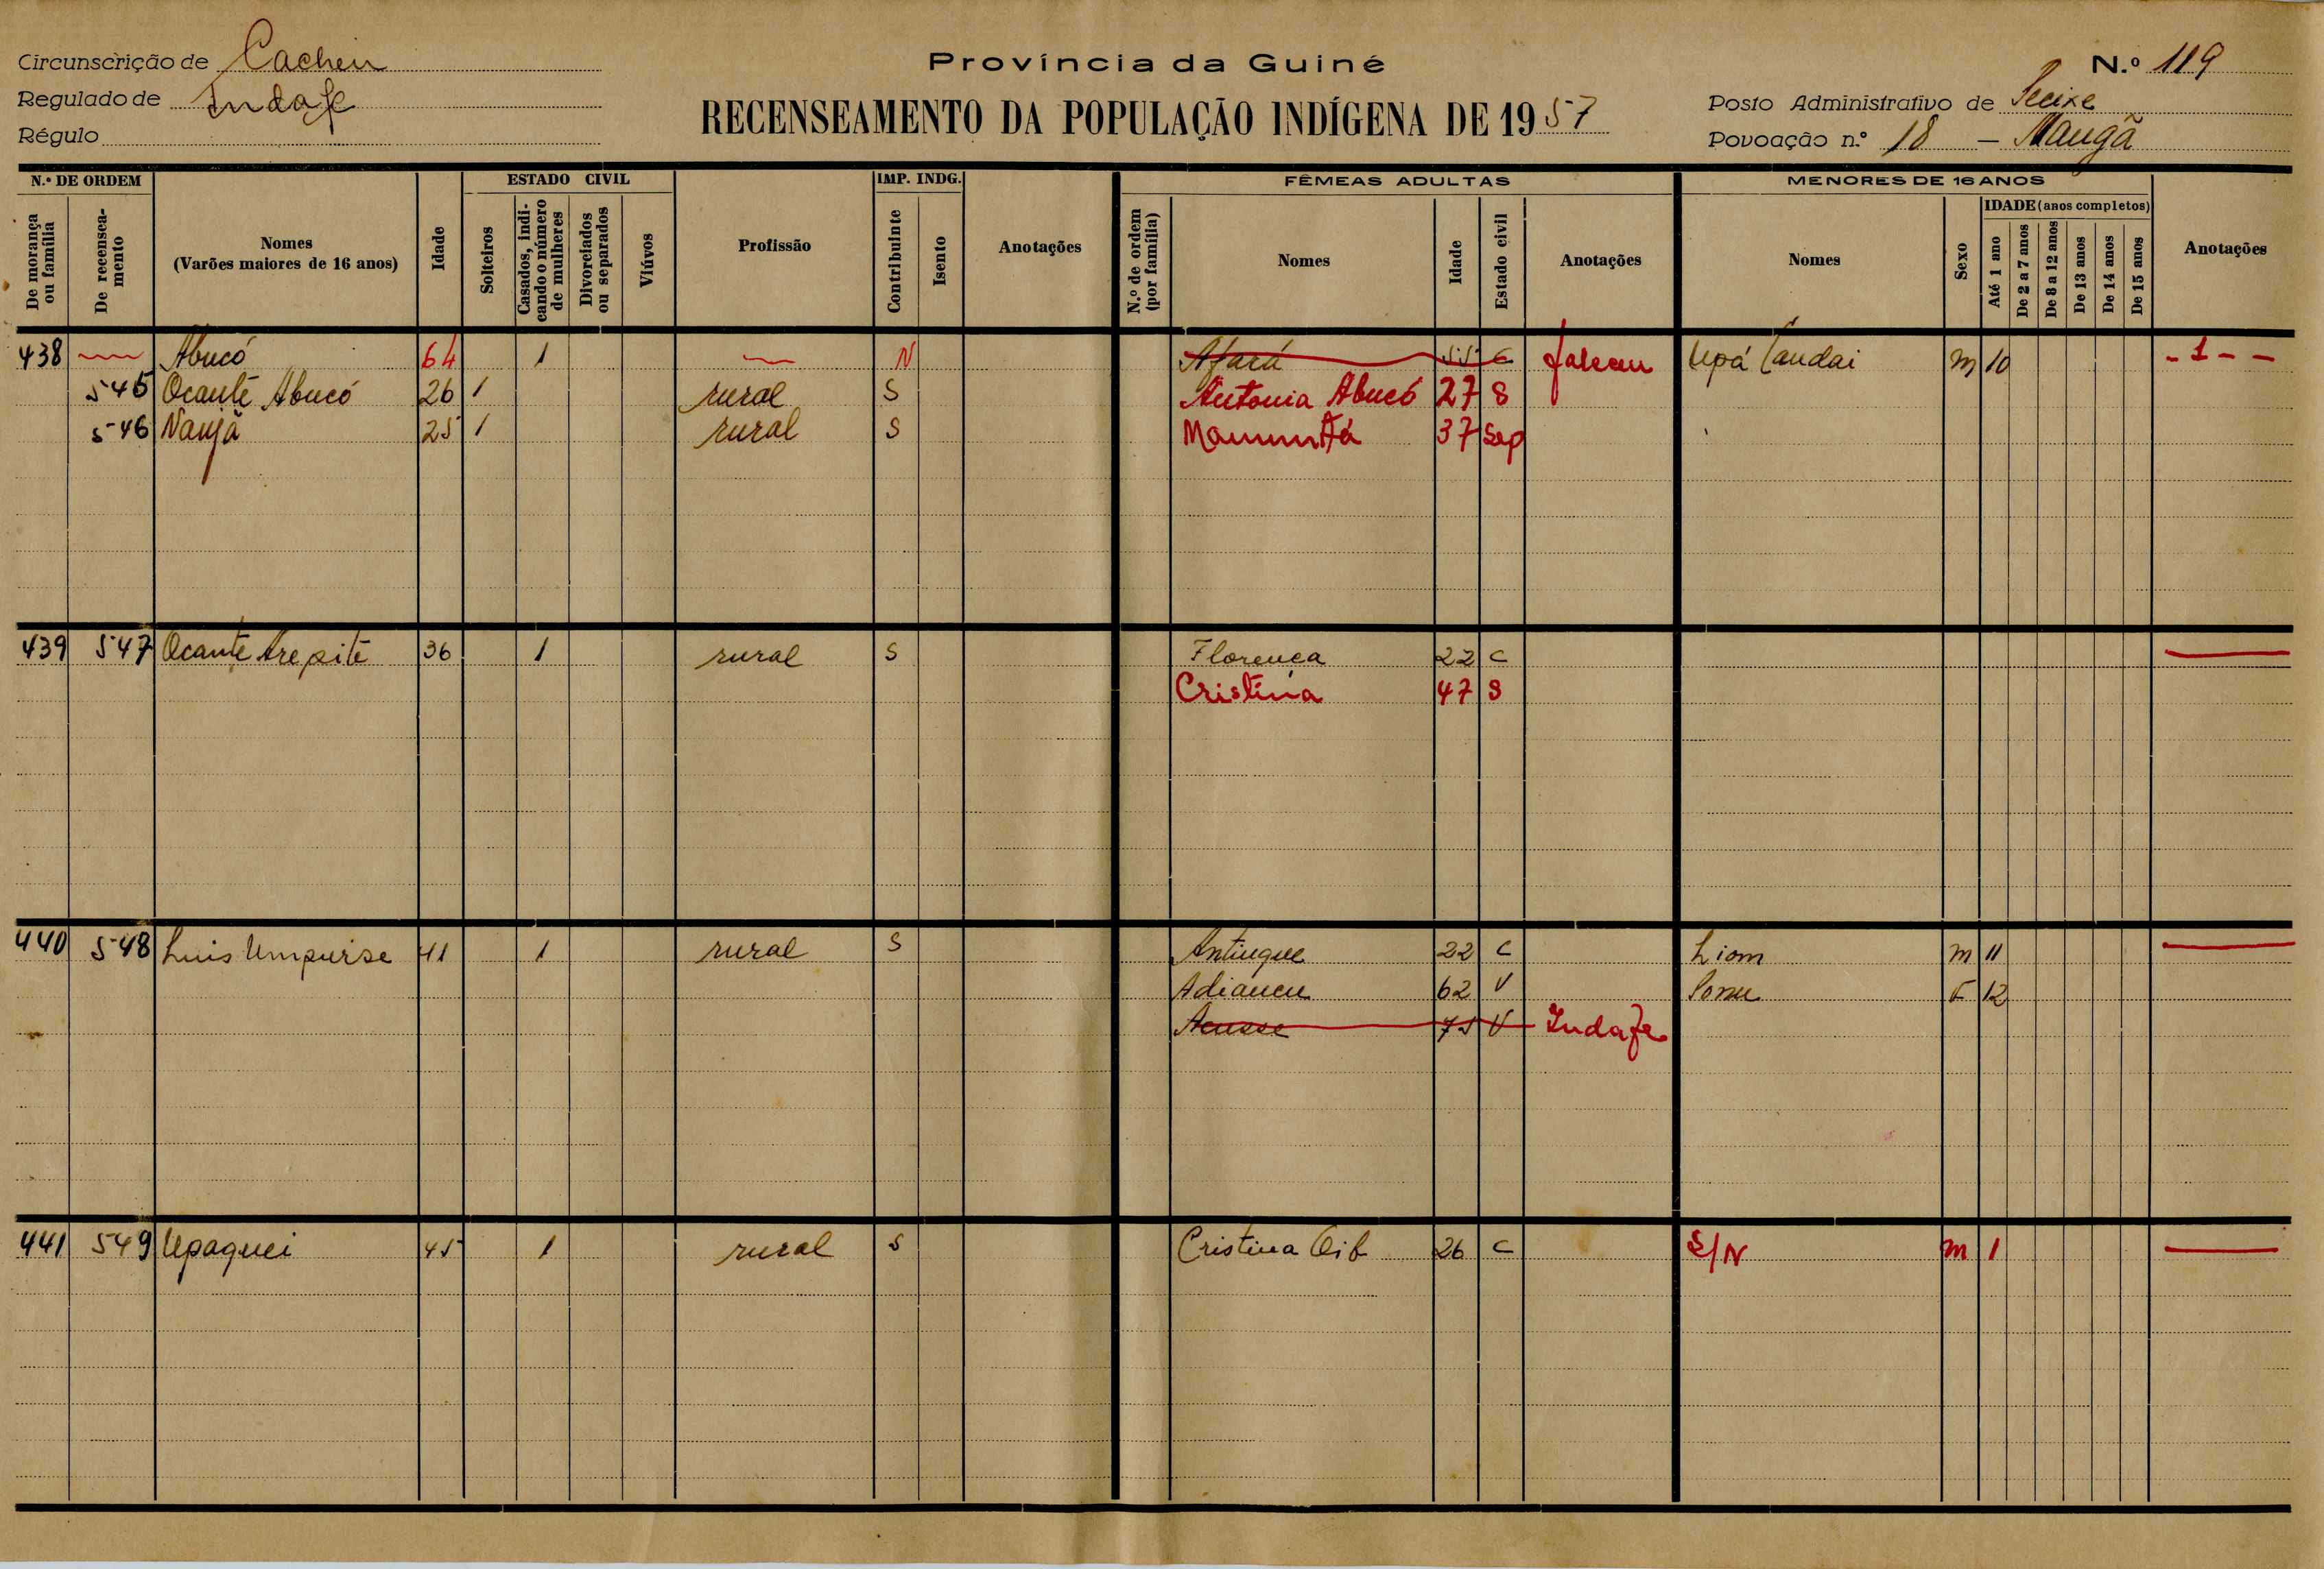 Circunscrição de Cacheu
Província da Guiné
N.º 119
Regulado de Indafe
RECENSEAMENTO DA POPULAÇÃO INDÍGENA DE 1957
Posto Administrativo de
Régulo
Povoação n.º 18 –
N.º DE ORDEM
ESTADO CIVIL
IMP. INDG.
FÊMEAS ADULTAS
MENORES DE 16 ANOS
IDADE (anos completos)
De morança ou família
De recenseamento
Nomes
(Varões maiores de 16 anos)
Idade
Solteiros
Casados, indicando o número de mulheres
Divorciados ou separados
Viúvos
Profissão
Contribuinte
Isento
Anotações
N.º de ordem (por família)
Nomes
Idade
Estado civil
Anotações
Nomes
Sexo
Até 1 ano
De 2 a 7 anos
De 8 a 12 anos
De 13 anos
De 14 anos
De 15 anos
Anotações
438 Abucó 64 1 N Afará 55 C faleceu Upá m 10 - 1 - -
545 Ocante Abucó 26 1 rural S Antonia Abucó 27 S
546 25 1 rural S 37 Sep
439 547 Ocante 36 1 rural S Florença 22 C
Cristina 47 S
440 548 Luis 41 1 rural S 22 C m 11
62 V F 12
Acusse 75 V Indafe
441 549 Upaquei 45 1 rural S Cristina 26 C S/N m 1